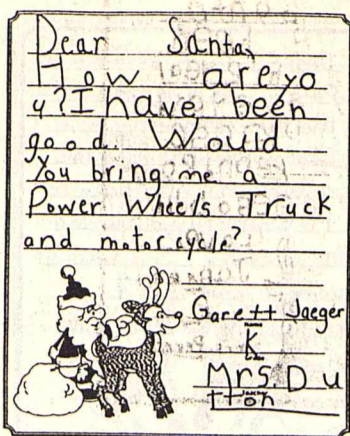 Dear Santa,
How are yo
u? I have been
good. Would
You bring me a
Power Wheels Truck
and motorcycle?
Garett Jaeger
K
Mrs. Du
tton